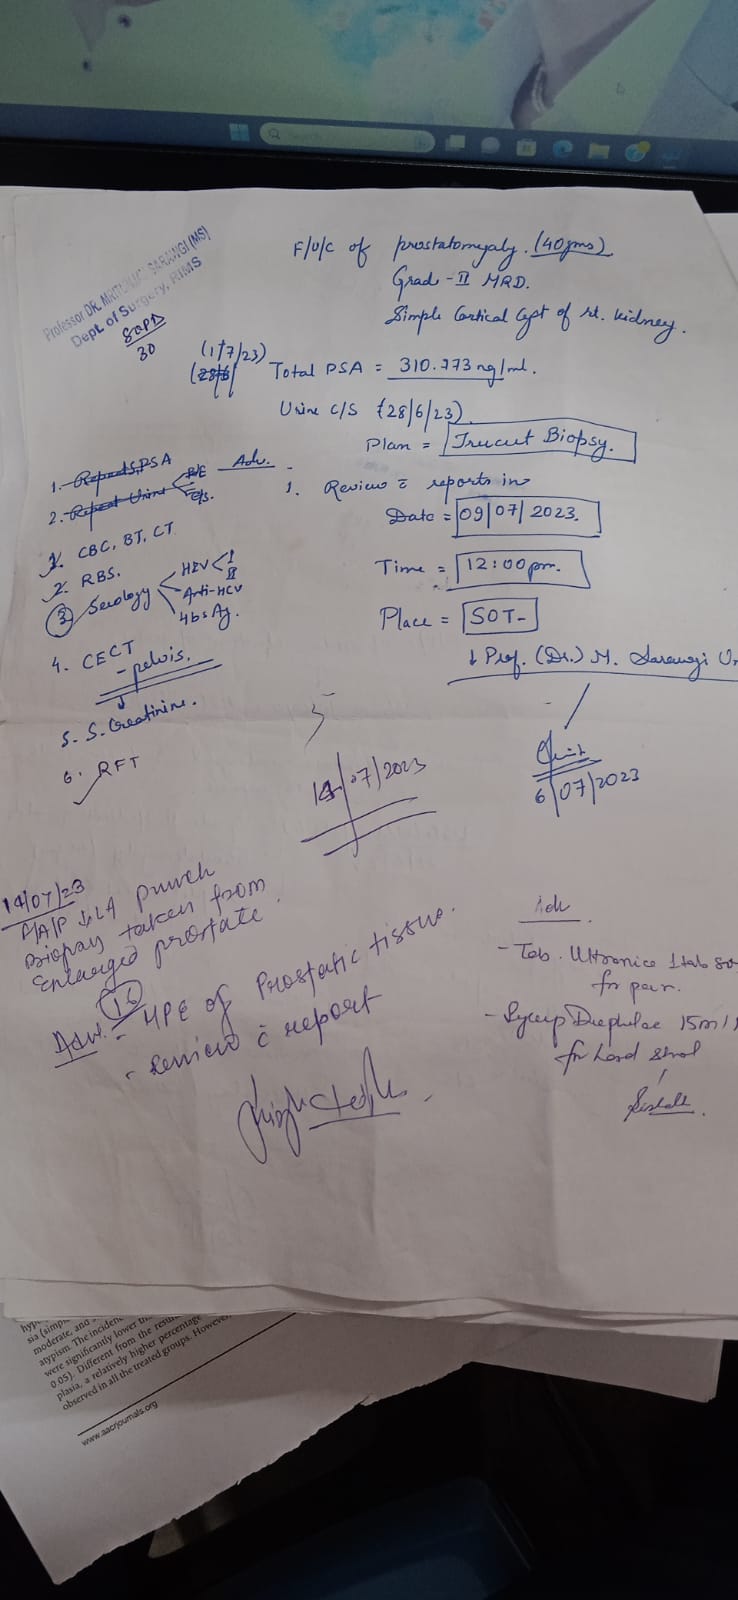 Search
Professor DR. MRITUNJAY SARANGI (MS)
Dept. of Surgery, RIMS
SOPD
30
F/U/C of prostatomegaly. (40gms)
Grad-II MRD.
Simple Cortical Cyst of rt. kidney.
(1/7/23)
Total PSA = 310.773 ng/ml.
Urine C/S (28/6/23)
Plan = Trucut Biopsy.
Adv.
1. Repeat S.PSA
2. Repeat Urine R/E
C/S.
1. CBC, BT, CT
2. RBS.
3 Serology HIV I
II
Anti-HCV
HbsAg.
4. CECT
- pelvis.
5. S. Creatinine.
6. RFT
1. Review c̄ reports in
Date = 09/07/2023.
Time = 12:00pm.
Place = SOT-
↓ Prof. (Dr.) M. Sarangi Un
6/07/2023
14/07/2023
14/07/23
↓ LA punch
Biopsy taken from
Enlarged prostate.
Adv. - HPE of Prostatic tissue.
- review c̄ report
Adv
- Tab. 1 tab
for pain.
- Syrup 15ml
for hard stool
hyp
sia (simp
moderate, and
atypism. The inciden
were significantly lower th
0.05). Different from the resu
plasia, a relatively higher percentage
observed in all the treated groups. Howeve
www.aacrjournals.org